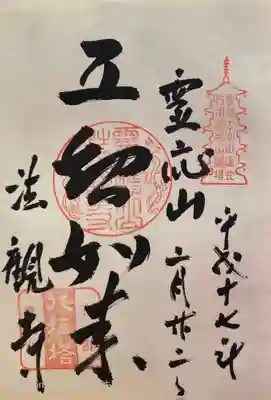 平成十七年
二月廿二日
霊応山
五智如来
法觀寺
八坂塔